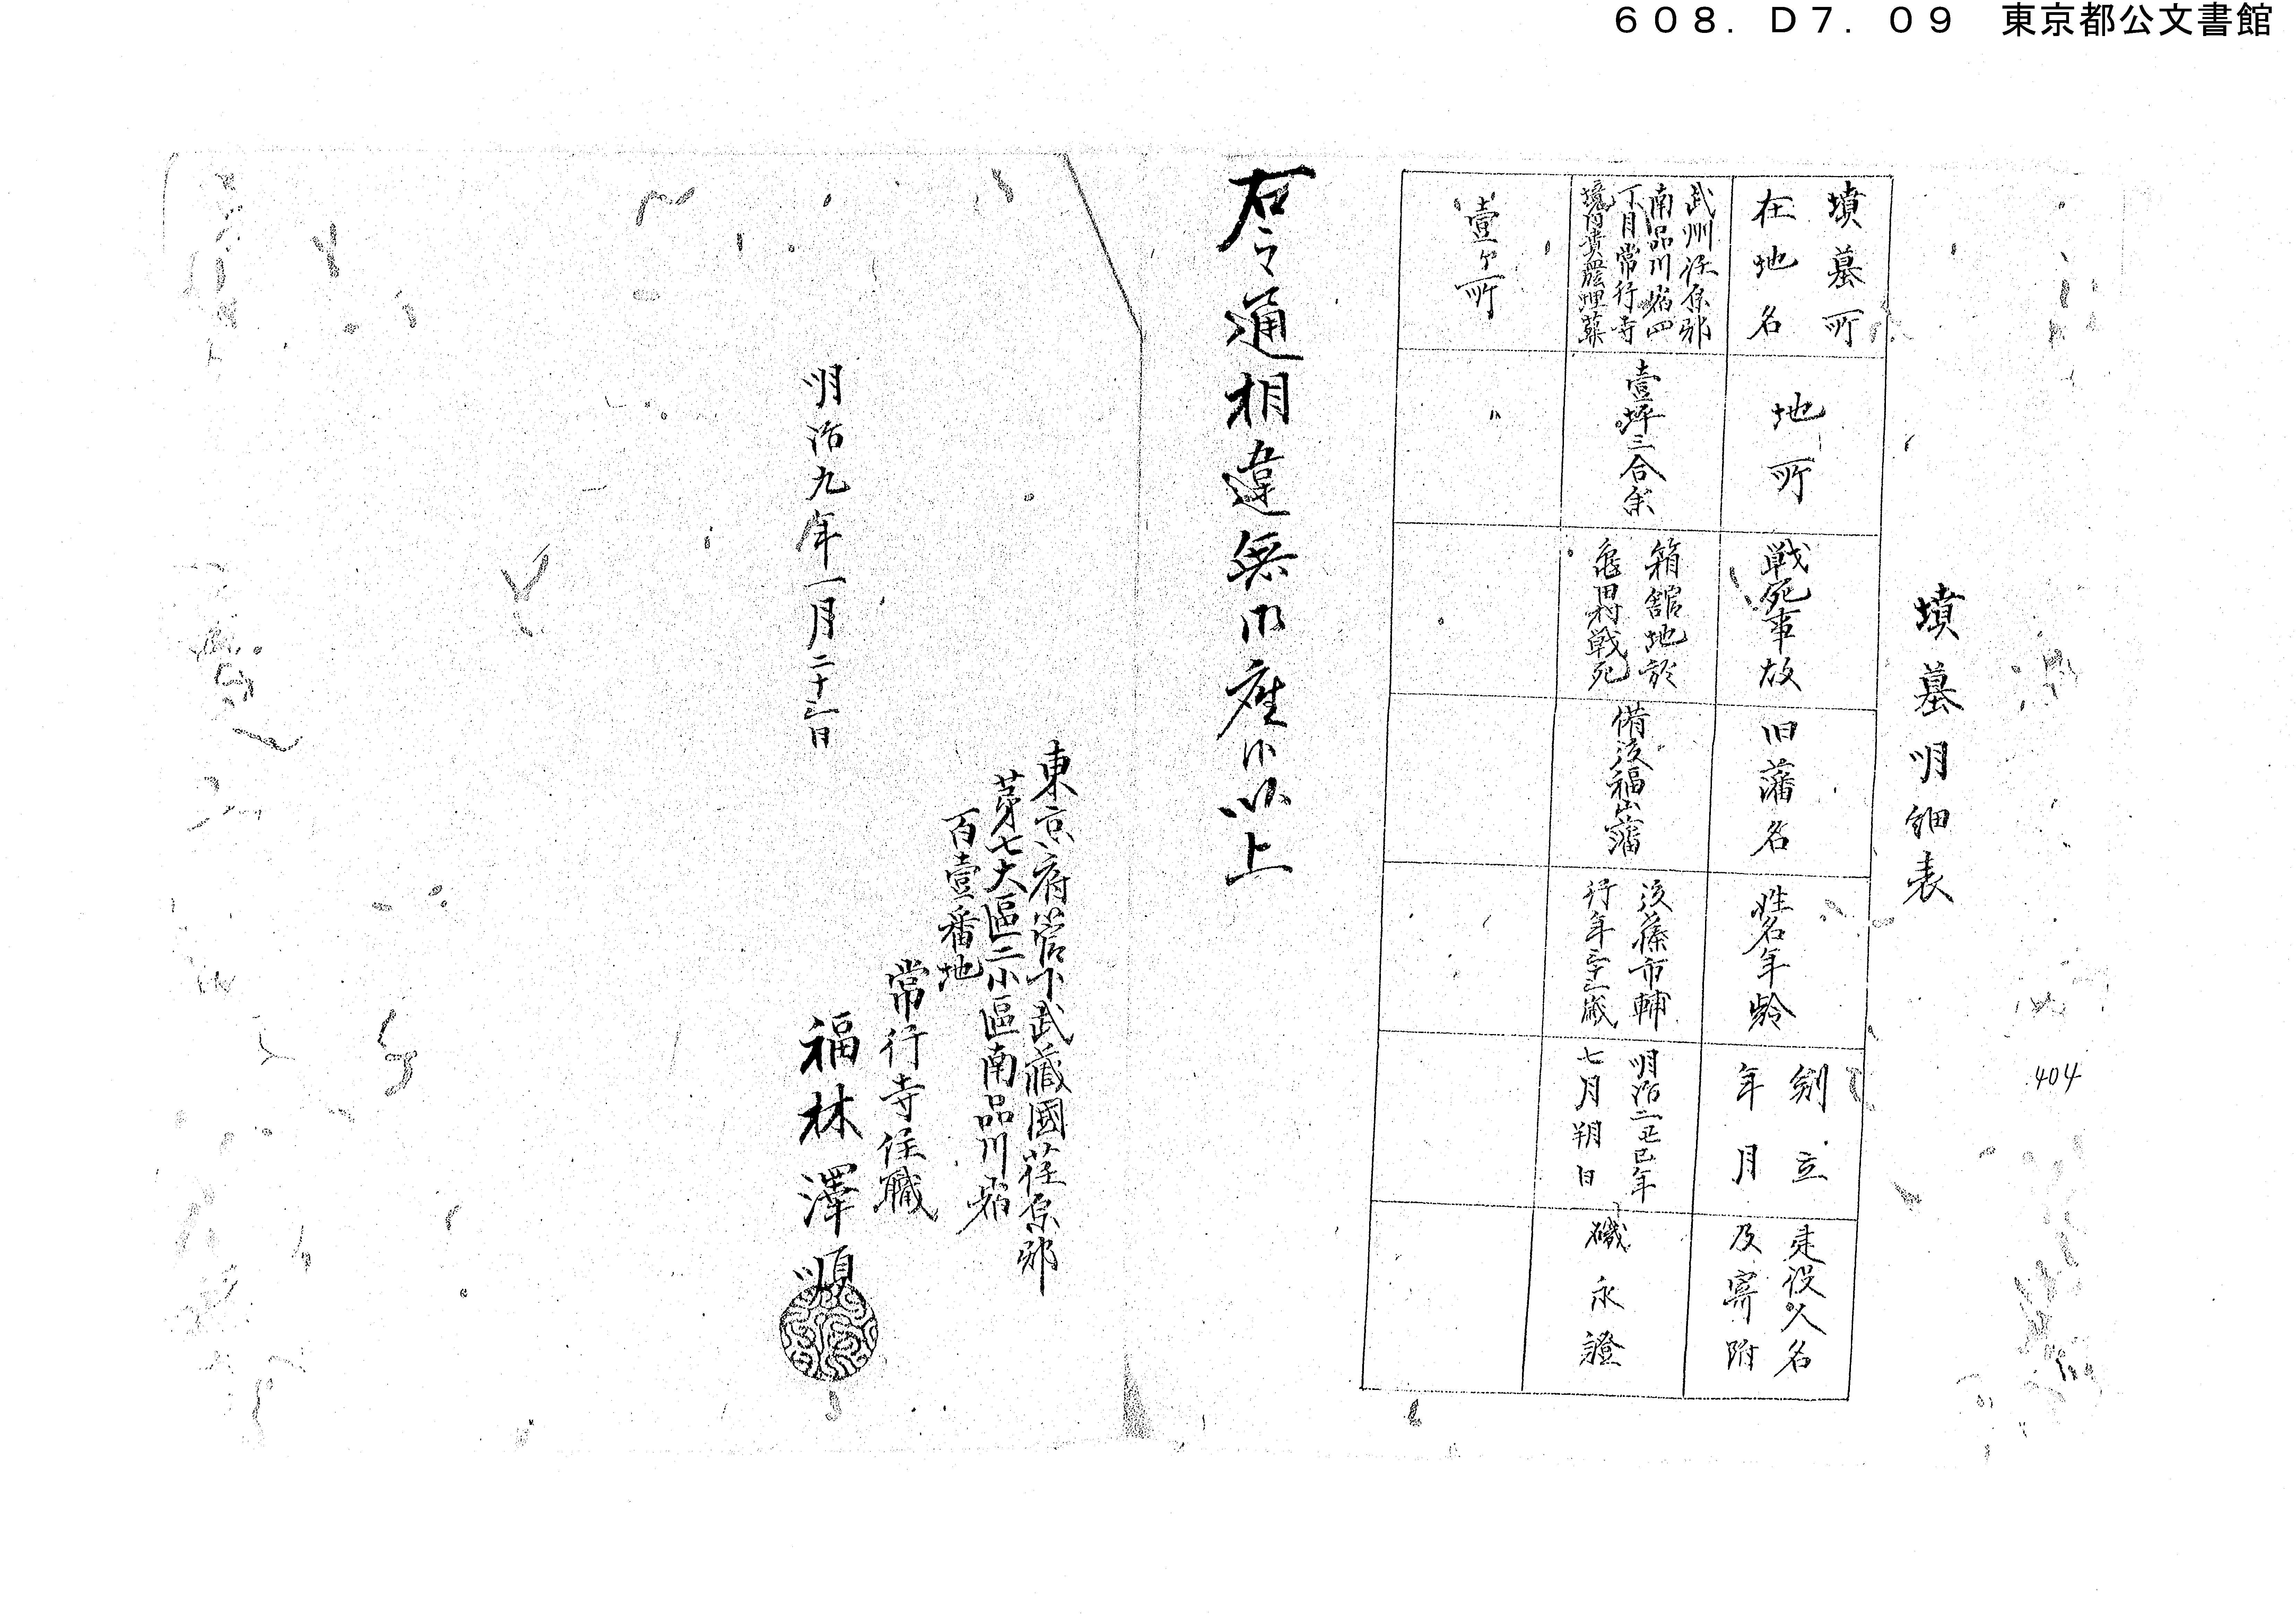 608.D7.09　東京都公文書館
墳墓明細表
墳墓所
在地名
地所
戦死事故
旧藩名
姓名年齢
剏立
年月
建設人名
及寄附
武州荏原郡
南品川宿四
丁目常行寺
境内
埋葬
壹坪三合余
箱館地於
亀田村戦死
備後福山藩
後藤市輔
行年二十二歳
明治二己巳年
七月朔日
磯永證
壹ヶ所
〃
404
右之通相違無御座候以上
東京府管下武蔵國荏原郡
第七大區二小區南品川宿
百壹番地
常行寺住職
福林澤順
明治九年一月二十二日